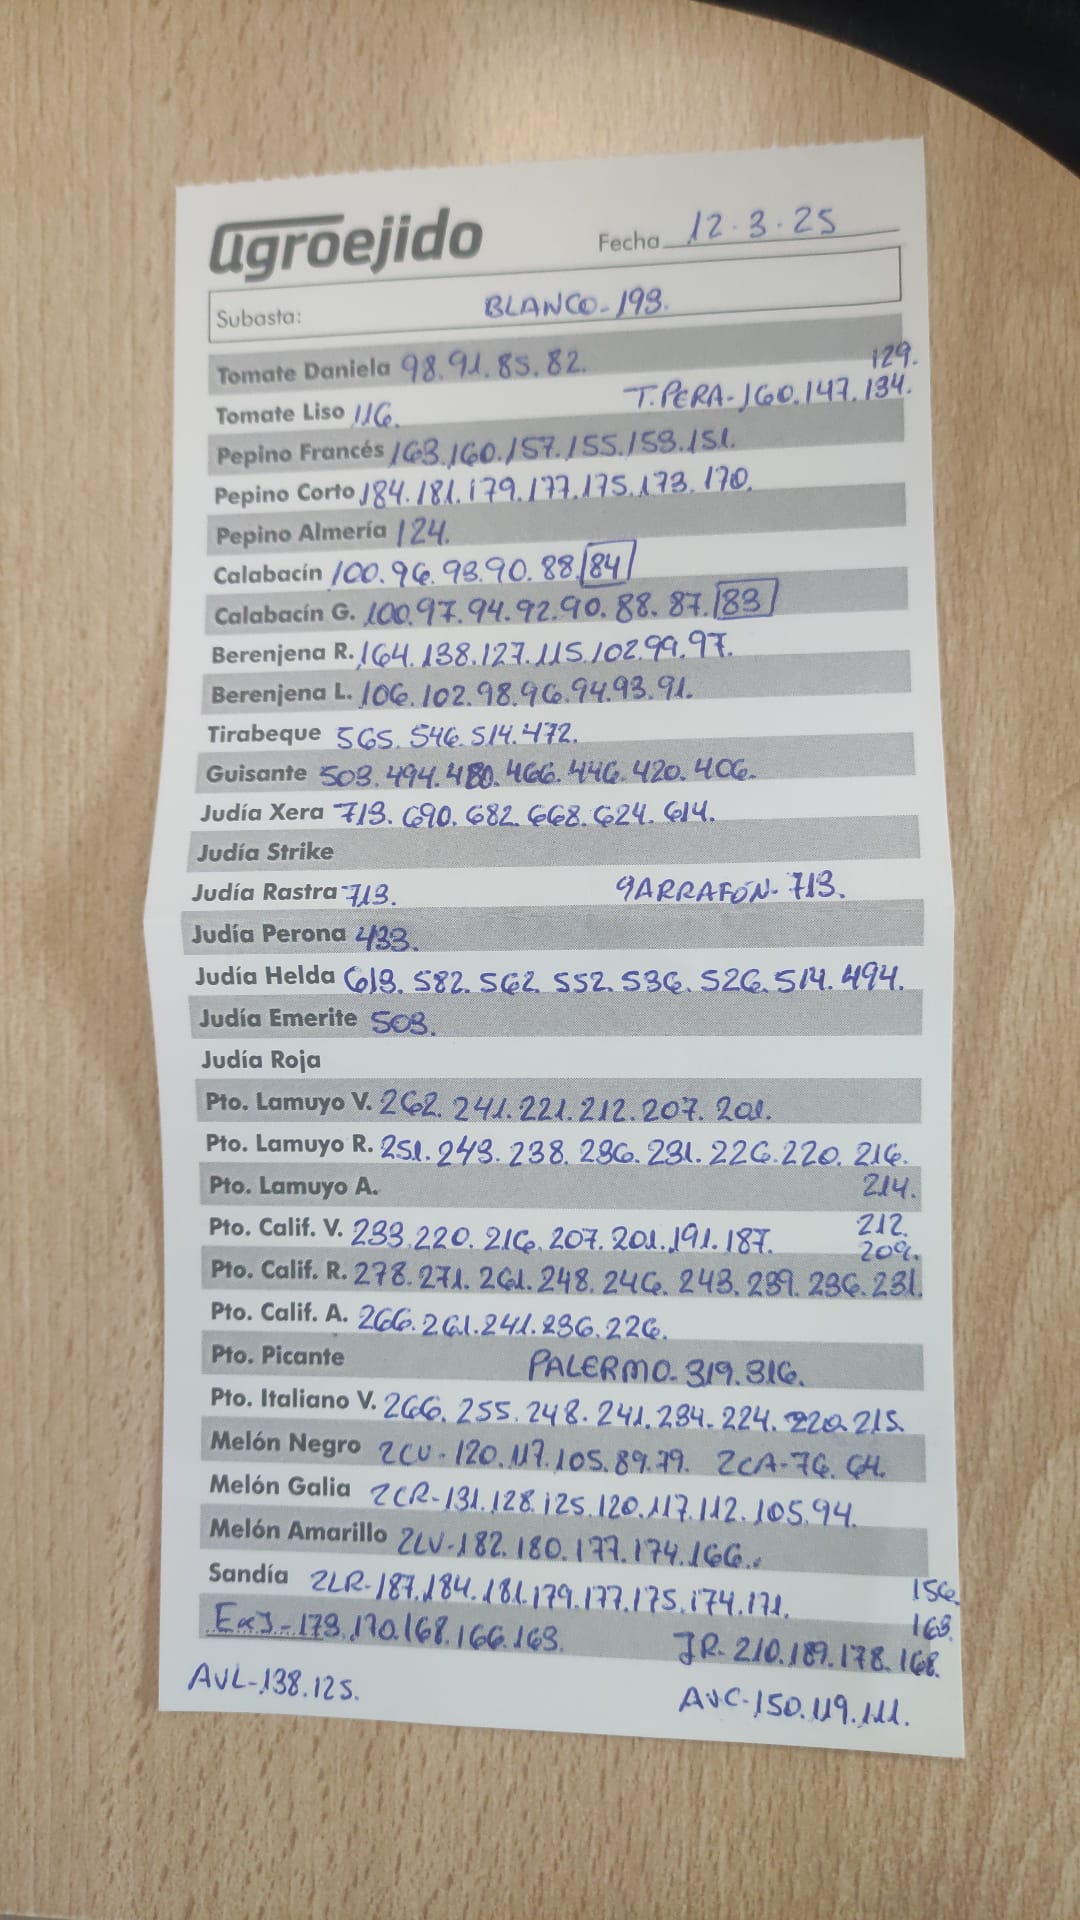 agroejido Fecha 12.3.25
Subasta: BLANCO-193.
Tomate Daniela 98.91.85.82. 129.
Tomate Liso 116. T.PERA-160.147.134.
Pepino Francés 163.160.157.155.153.151.
Pepino Corto 184.181.179.177.175.173.170.
Pepino Almería 124.
Calabacín 100.96.93.90.88.84
Calabacín G. 100.97.94.92.90.88.87.83
Berenjena R. 164.138.127.115.102.99.97.
Berenjena L. 106.102.98.96.94.93.91.
Tirabeque 565.546.514.472.
Guisante 503.494.480.466.446.420.406.
Judía Xera 713.690.682.668.624.614.
Judía Strike
Judía Rastra 713. GARRAFÓN-713.
Judía Perona 433.
Judía Helda 613.582.562.552.536.526.514.494.
Judía Emerite 503.
Judía Roja
Pto. Lamuyo V. 262.241.221.212.207.201.
Pto. Lamuyo R. 251.243.238.236.231.226.220.216.
Pto. Lamuyo A. 214.
Pto. Calif. V. 233.220.216.207.201.191.187. 212.
209.
Pto. Calif. R. 278.271.261.248.246.243.239.236.231.
Pto. Calif. A. 266.261.241.236.226.
Pto. Picante PALERMO-319.316.
Pto. Italiano V. 266.255.248.241.234.224.220.215.
Melón Negro 2CU-120.117.105.89.79. 2CA-76.64.
Melón Galia 2CR-131.128.125.120.117.112.105.94.
Melón Amarillo 2LV-182.180.177.174.166.
Sandía 2LR-187.184.181.179.177.175.174.171. 156.
163.
ExJ-173.170.168.166.163. JR-210.189.178.168.
AVL-138.125. AVC-150.119.111.